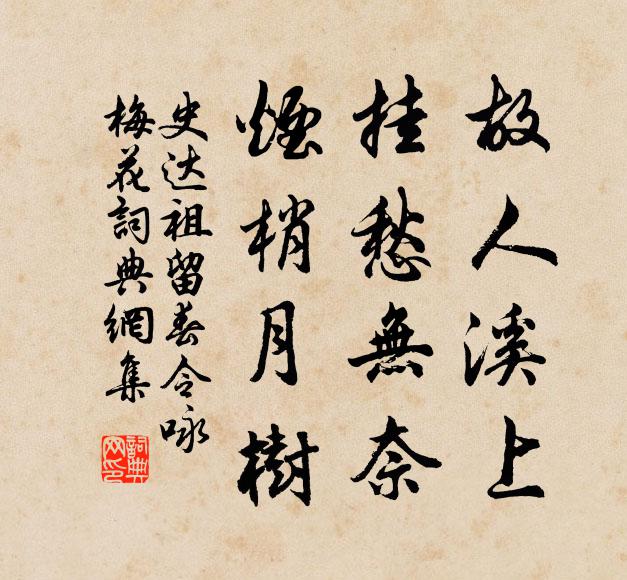 故人溪上
挂愁無奈
煙梢月樹
史达祖留春令咏
梅花詞典網集
詞典网印